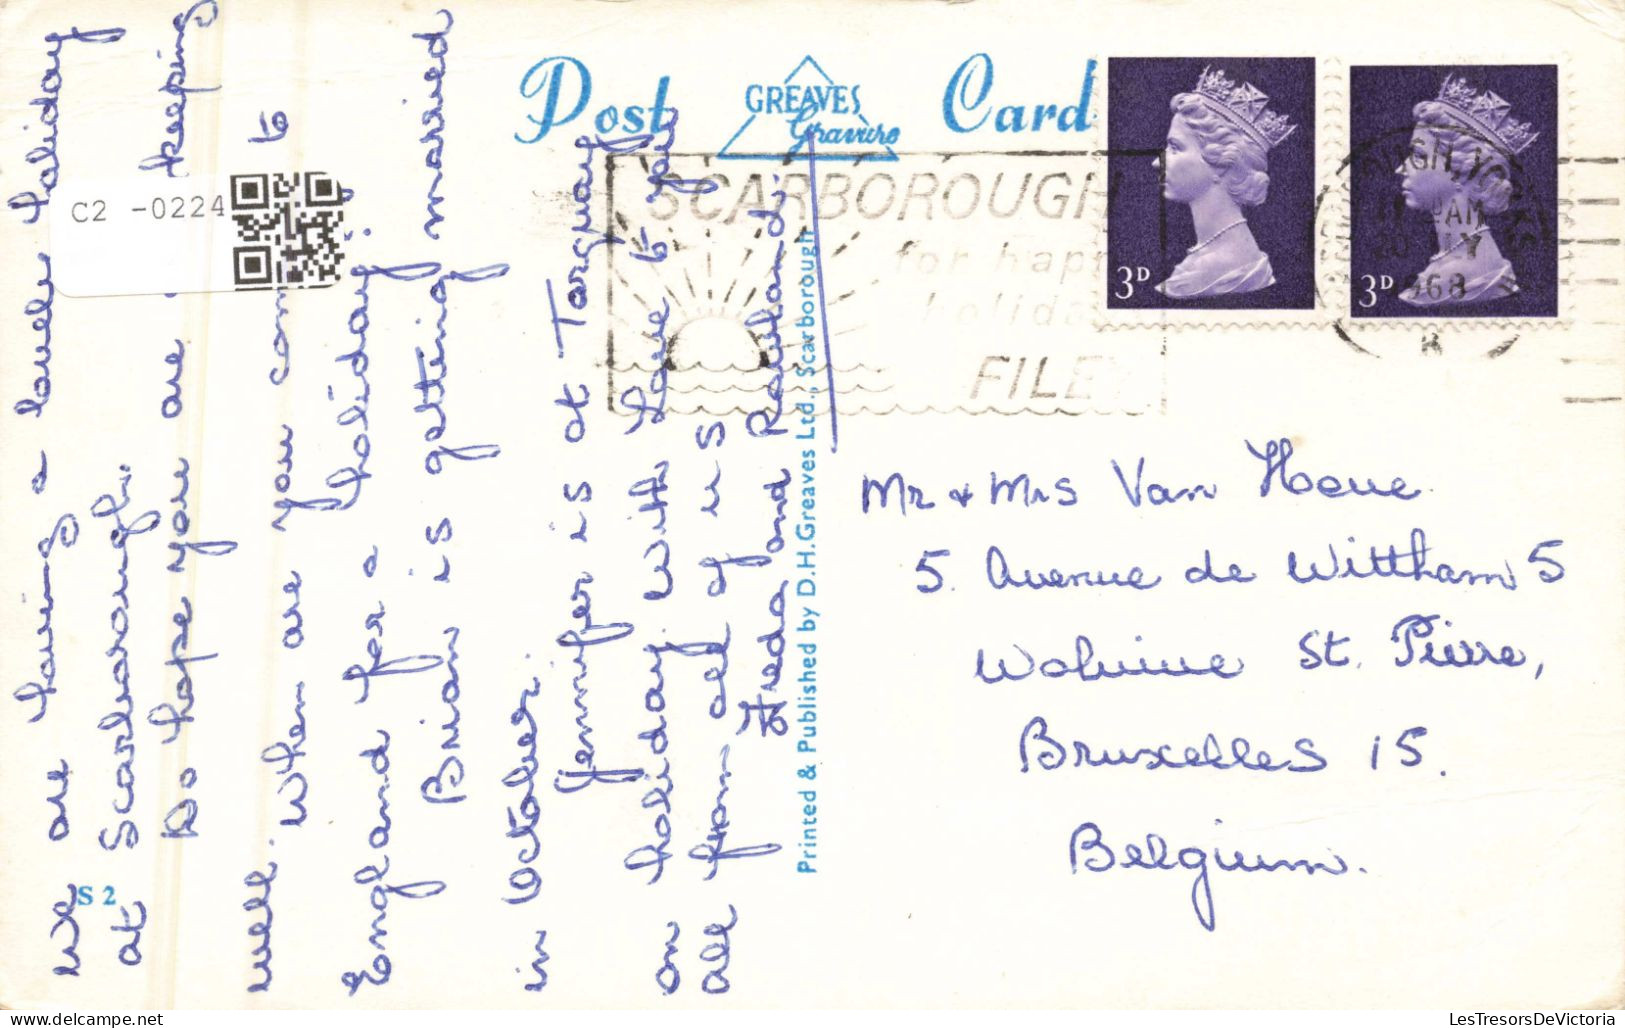 We are having a lovely holiday
at Scarborough.
Do hope you are keeping
well. When are you coming to
England for a holiday?
Brian is getting married
in October.
Jennifer is at Torquay
on holiday. With Love to you
all from all of us
Freda and Rowland.
S2
C2 -0224
Post Card
GREAVES
Gravure
Printed & Published by D.H. Greaves Ltd., Scarborough
SCARBOROUGH
for happy
holidays
FILEY
3D
3D
OUGH, YORKS
AM
1968
Mr + Mrs Van Hove
5. Avenue de Wittham 5
Woluwe St. Pierre,
Bruxelles 15.
Belgium.
LesTresorsDeVictoria